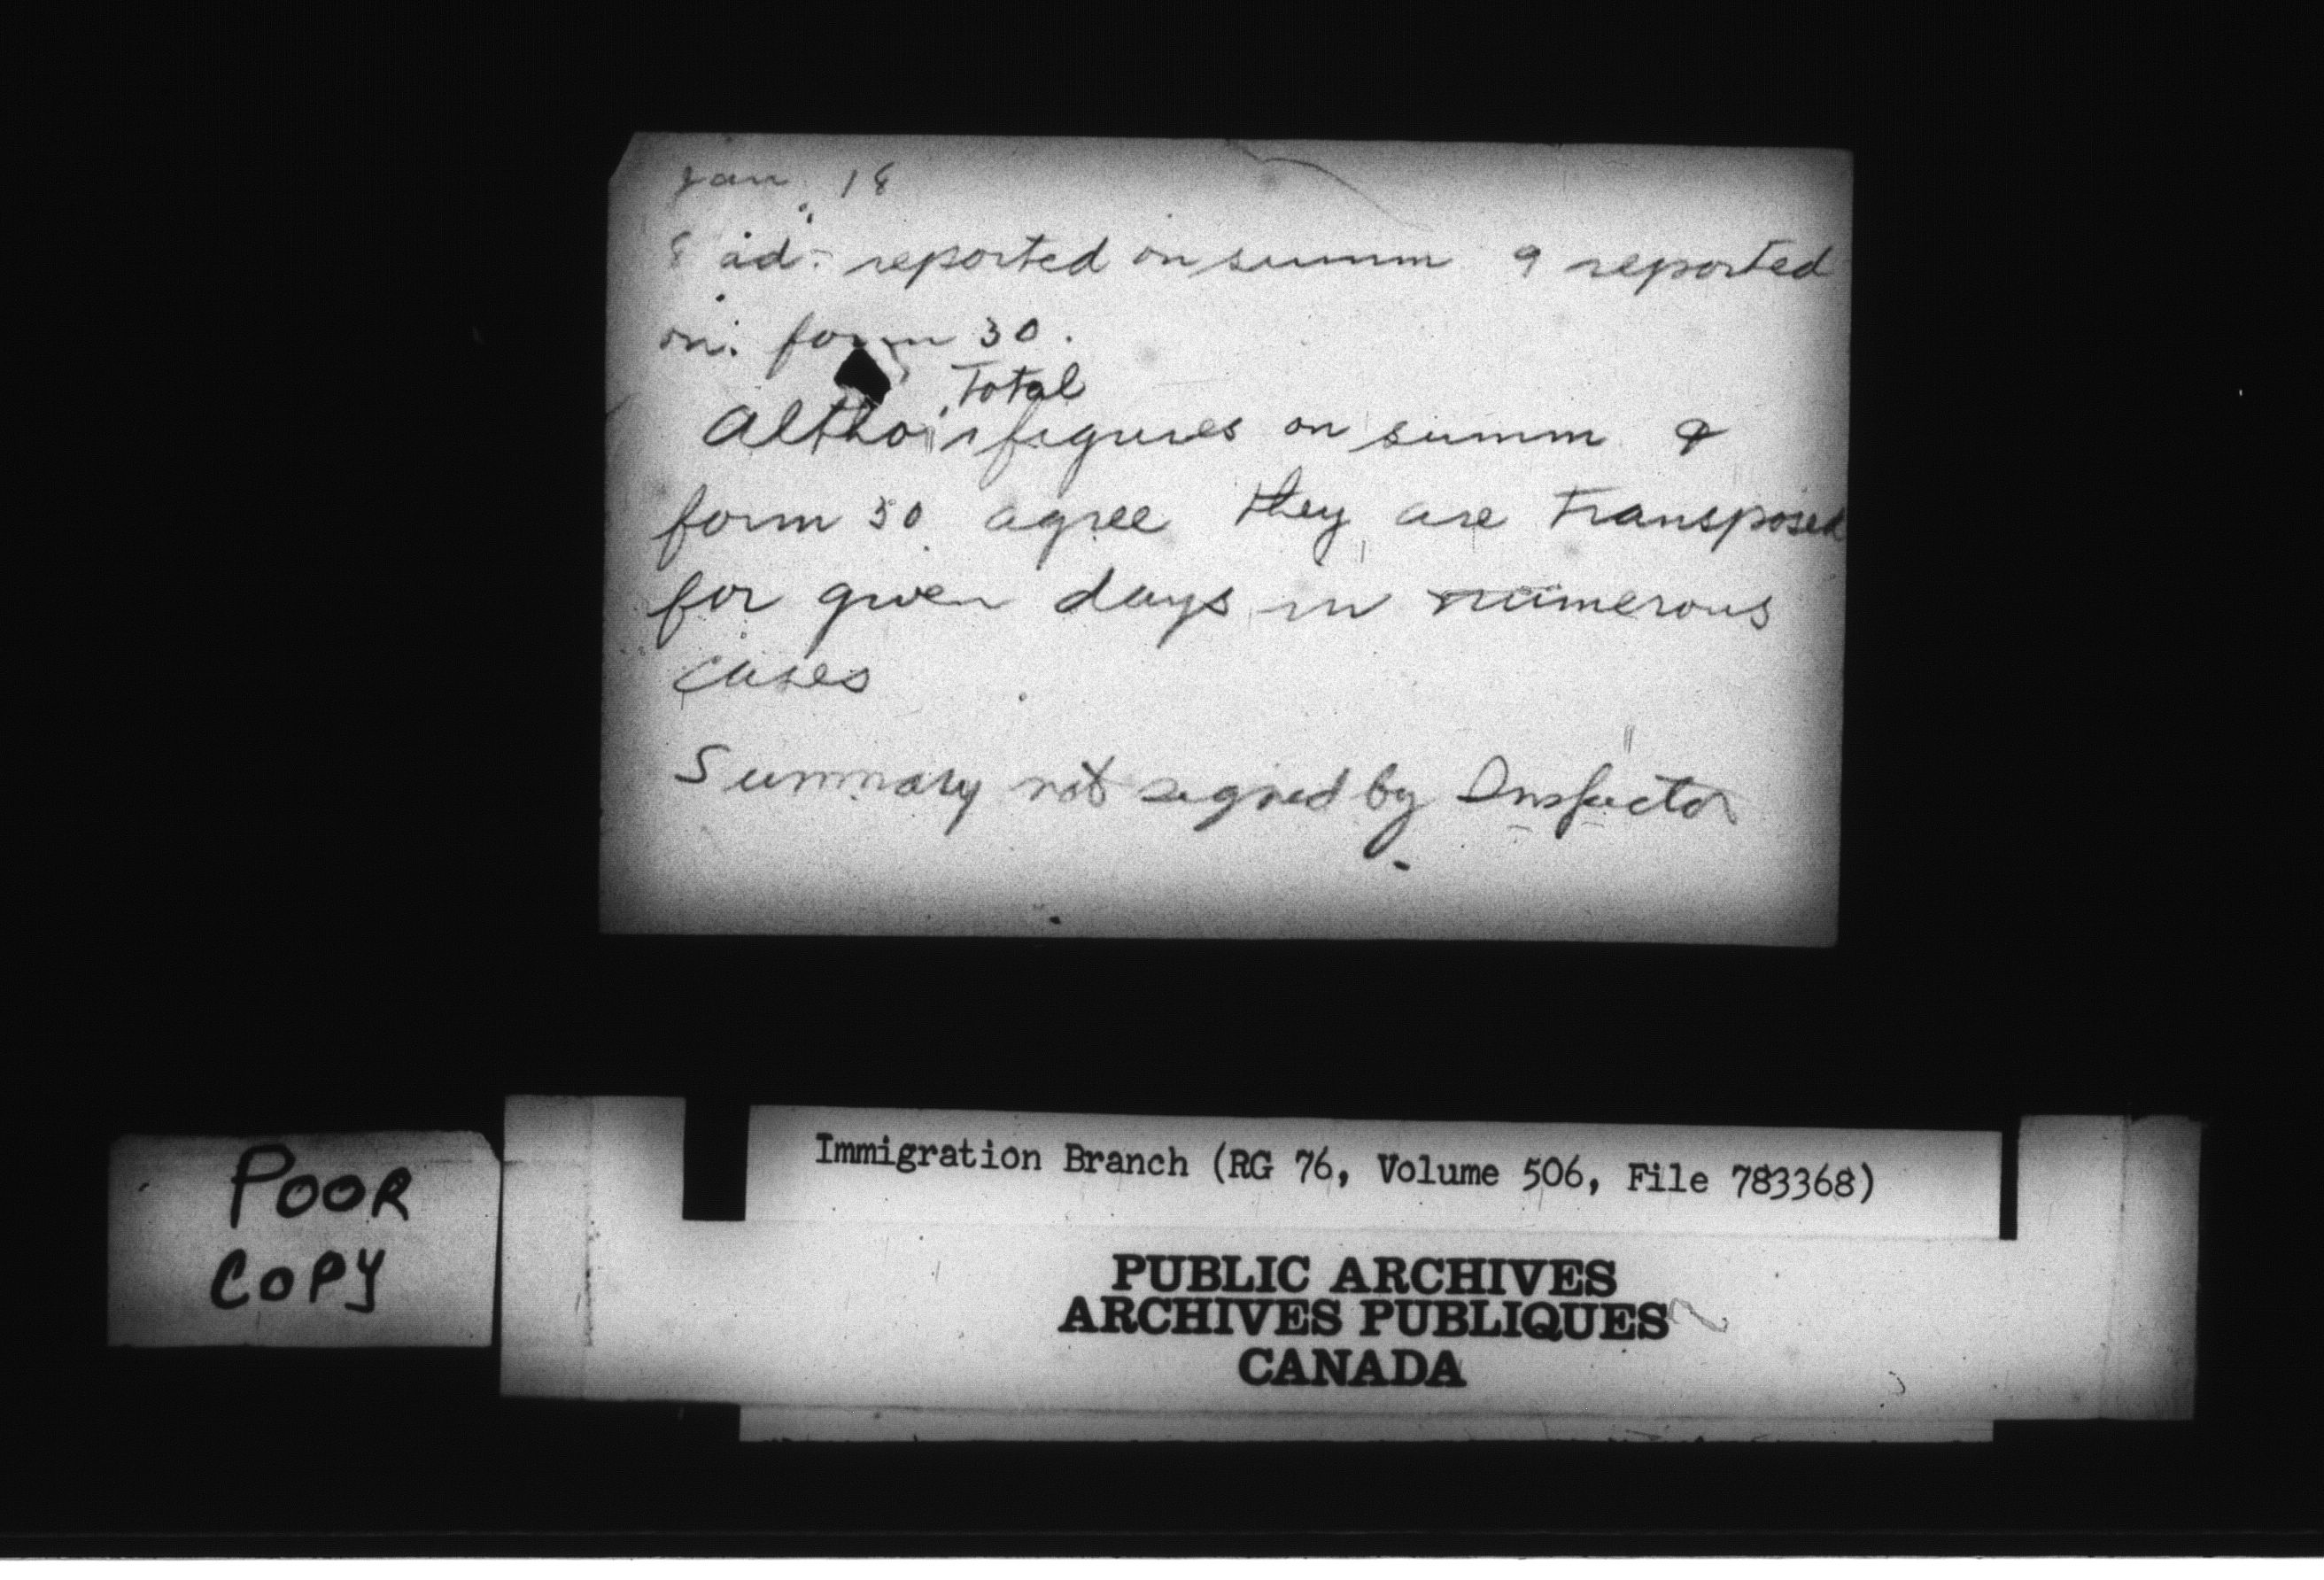 Jan. 18
8 ad. reported on summ 9 reported
on form 30.
Total
Altho figures on summ &
form 30 agree they are transposed
for given days in numerous
cases
Summary not signed by Inspector
POOR
COPY
Immigration Branch (RG 76, Volume 506, File 783368)
PUBLIC ARCHIVES
ARCHIVES PUBLIQUES
CANADA